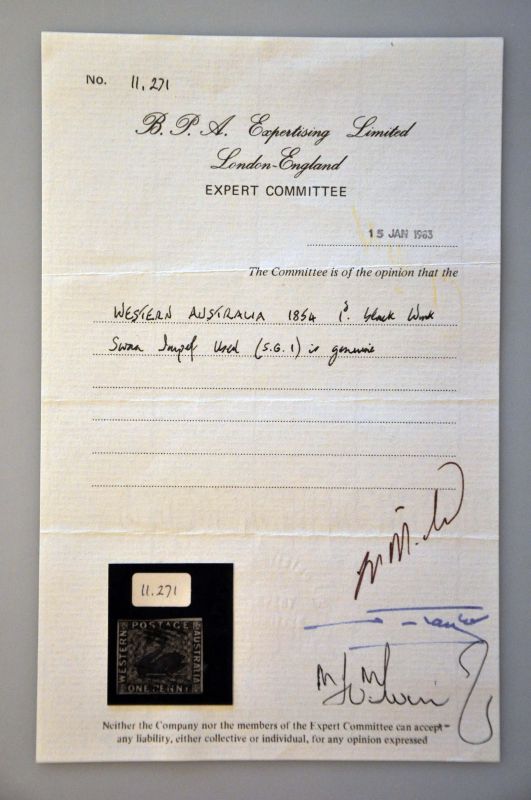 No. 11,271
B. P. A. Expertising Limited
London-England
EXPERT COMMITTEE
15 JAN 1963
The Committee is of the opinion that the
WESTERN AUSTRALIA 1854 1d. black Wmk
Swan Imperf Used (S.G.1) is genuine
11.271
POSTAGE
WESTERN
AUSTRALIA
ONE PENNY
Neither the Company nor the members of the Expert Committee can accept
any liability, either collective or individual, for any opinion expressed